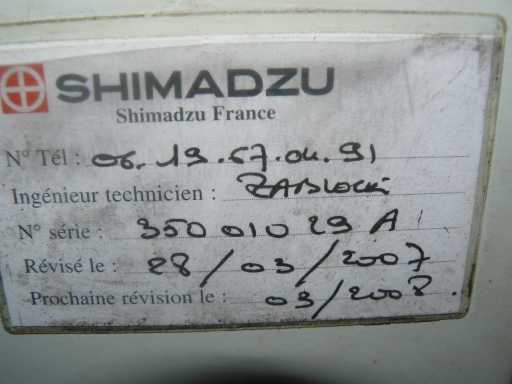 SHIMADZU
Shimadzu France
N° Tél : 06.19.67.04.91
Ingénieur technicien : ZABLOCKI
N° série : 350 010 29 A
Révisé le : 28/03/2007
Prochaine révision le : 03/2008.